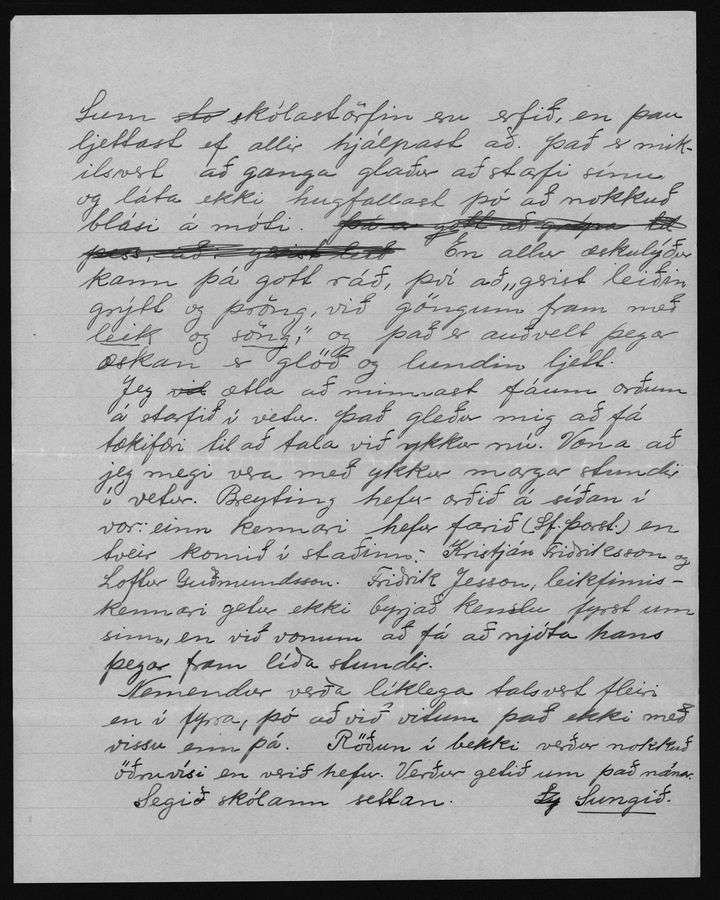 Sum sto skólastörfin eru erfið, en þau
ljettast ef allir hjálpast að. Það er mik-
ilsvert að ganga glaður að starfi sínu
og láta ekki hugfallast þó að nokkuð
blási á móti. Þá er gott að grípa til
þess, að greist leið En allur æskulýður
kann þá gott ráð, því að „gerist leiðin
grýtt og þröng, við göngum fram með
leik og söng," og það er auðvelt þegar
æskan er glöð og lundin ljett.
Jeg vil ætla að minnast fáum orðum
á starfið í vetur. Það gleður mig að fá
tækifæri til að tala við ykkur nú. Vona að
jeg megi vera með ykkur margar stundir
í vetur. Breyting hefur orðið á síðan í
vor: einn kennari hefur farið (Sf. Þorst.) en
tveir komið í staðinn: Kristján Friðriksson og
Loftur Guðmundsson. Friðrik Jesson, leikfimis-
kennari getur ekki byrjað kenslu fyrst um
sinn, en við vonum að fá að njóta hans
þegar fram líða stundir.
Nemendur verða líklega talsvert fleiri
en í fyrra, þó að við vitum það ekki með
vissu enn þá. Röðun í bekki verður nokkuð
öðruvísi en verið hefur. Verður getið um það nánar.
Segið skólann settan. Sungið.